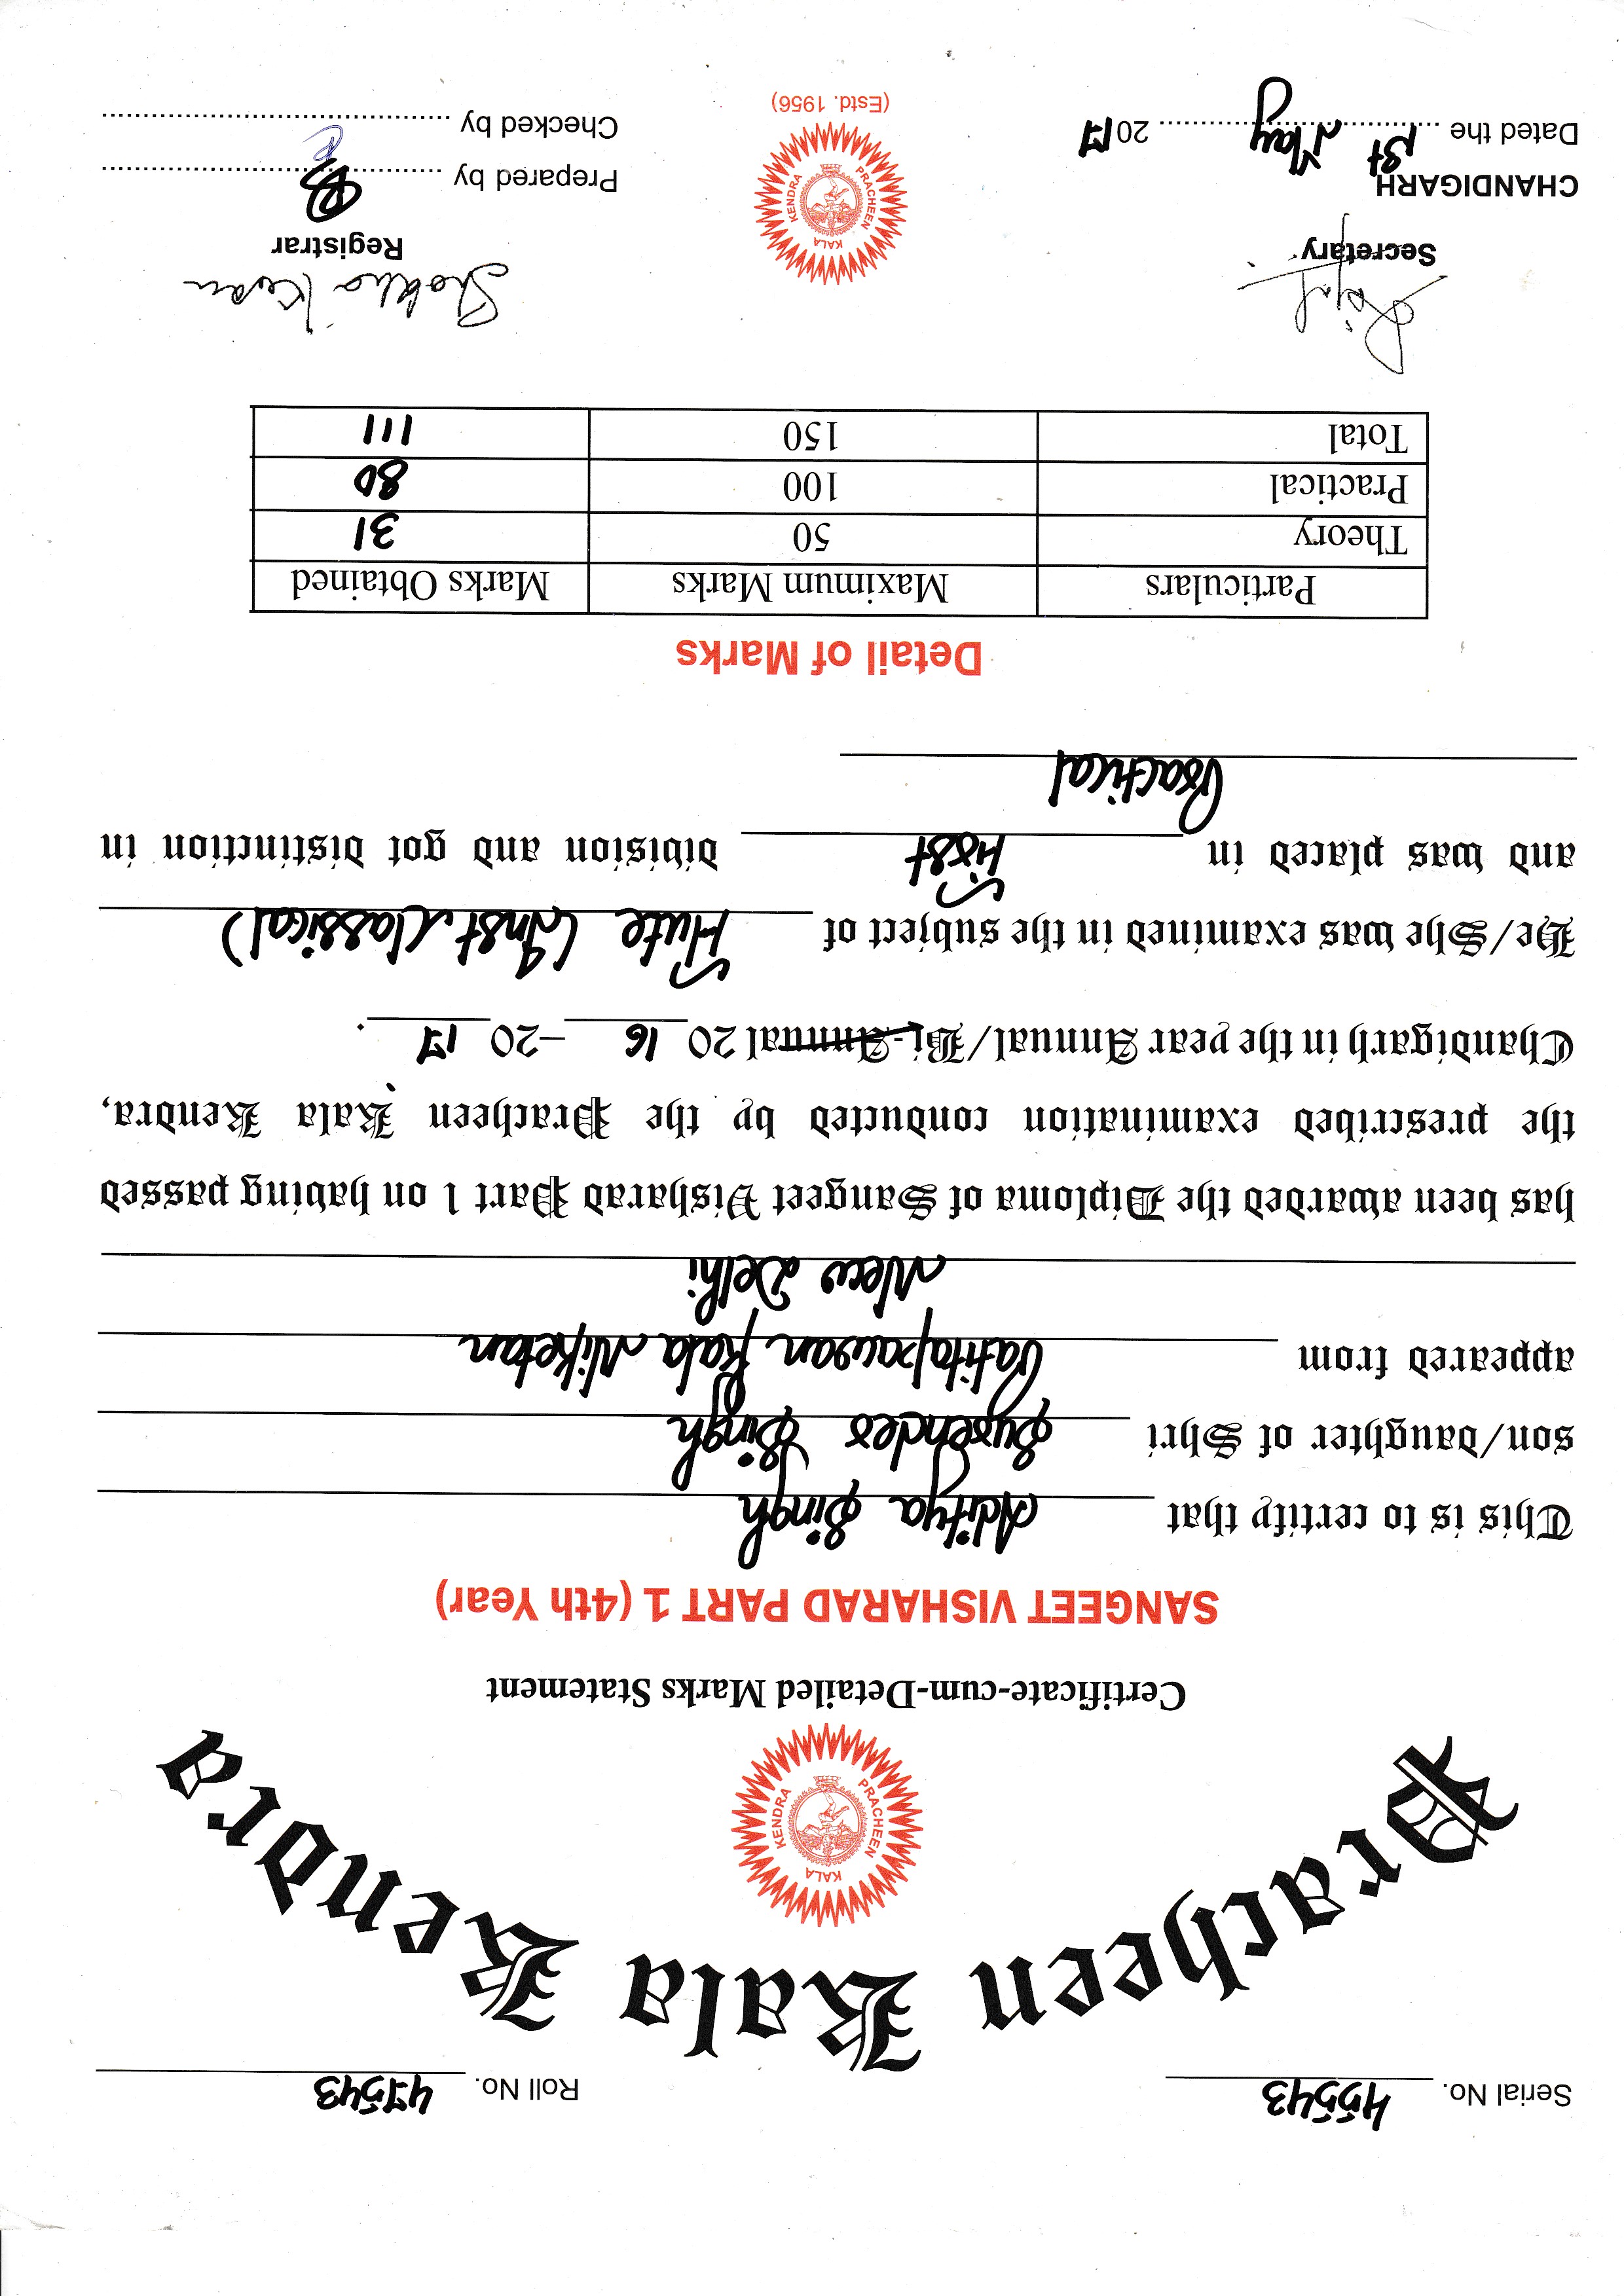 Serial No. 45543
Roll No. 47543
Pracheen Kala Kendra
PRACHEEN KALA KENDRA
Certificate-cum-Detailed Marks Statement
SANGEET VISHARAD PART 1 (4th Year)
This is to certify that Aditya Singh
son/daughter of Shri Surender Singh
appeared from Patitapawan Kala Niketan
New Delhi
has been awarded the Diploma of Sangeet Visharad Part 1 on having passed
the prescribed examination conducted by the Pracheen Kala Kendra,
Chandigarh in the year Annual/Bi-Annual 20 16 –20 17 .
He/She was examined in the subject of Flute (Inst. Classical)
and was placed in First division and got distinction in
Practical
Detail of Marks
Particulars Maximum Marks Marks Obtained
Theory 50 31
Practical 100 80
Total 150 111
Shobha Kesar
Secretary
Registrar
PRACHEEN KALA KENDRA
CHANDIGARH
Prepared by
Dated the 1st May 2017
Checked by
(Estd. 1956)